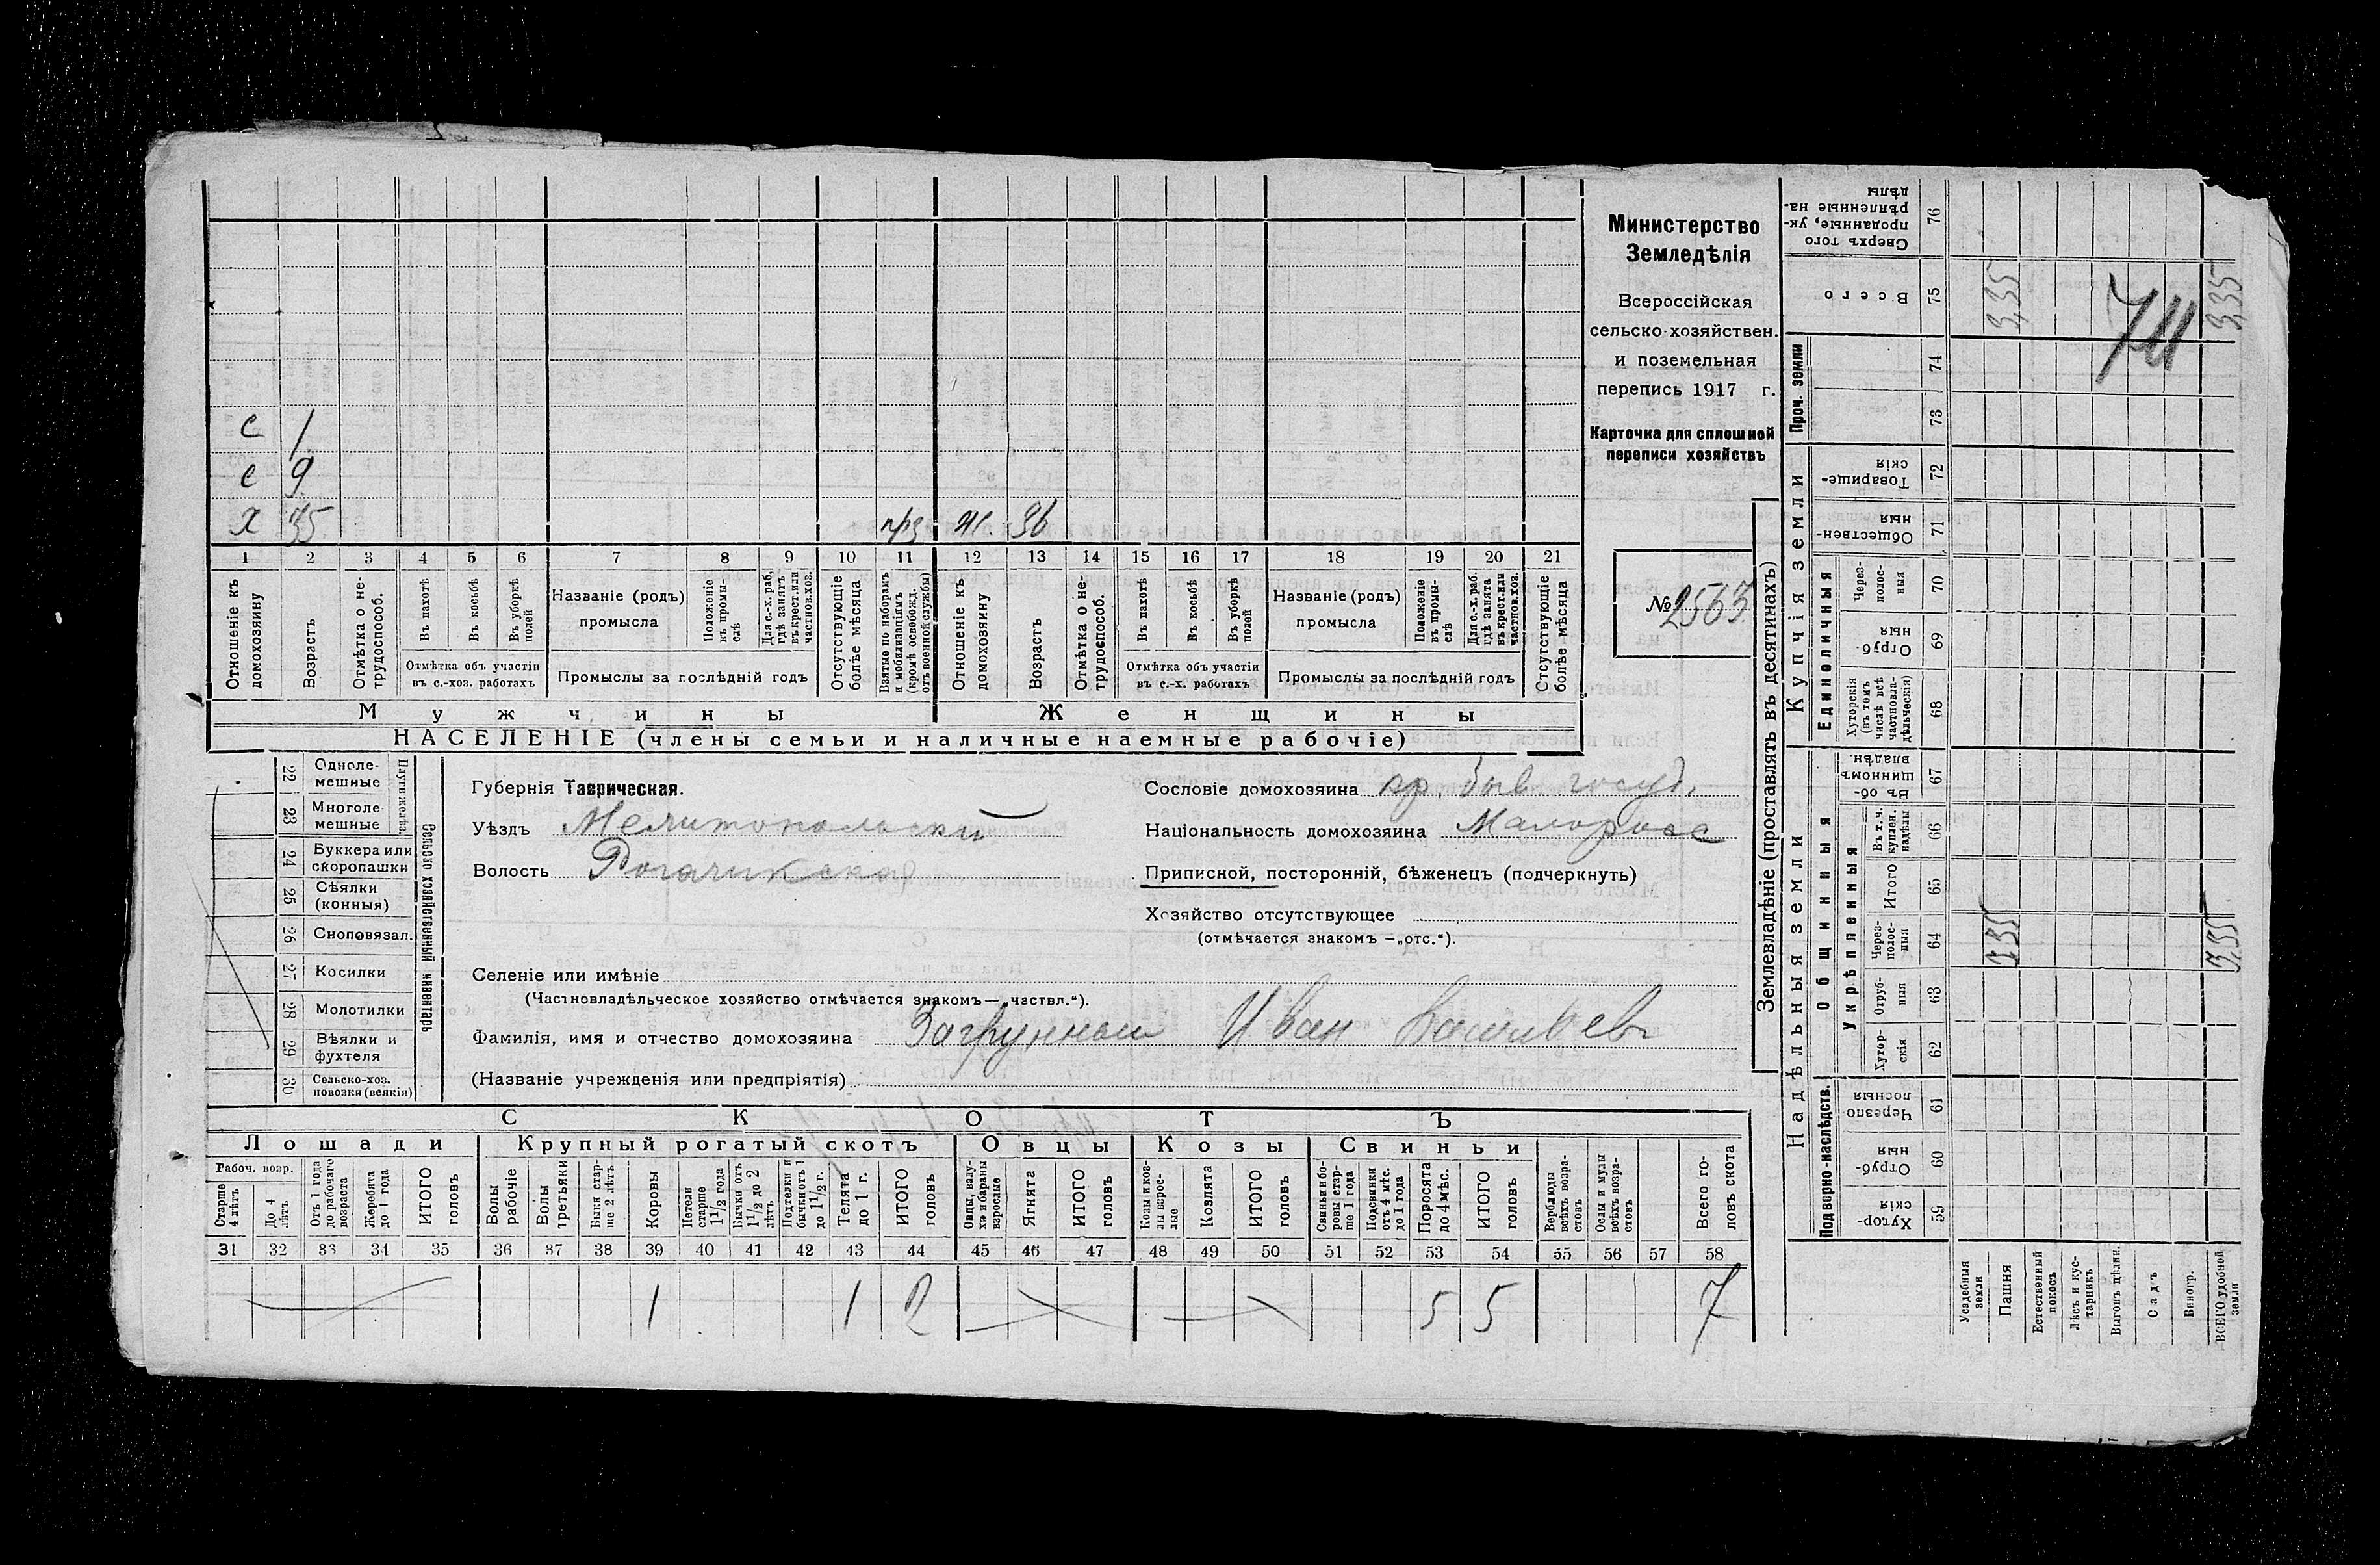 Министерство
Земледѣлія
Всероссійская
сельско-хозяйствен.
и поземельная
перепись 1917 г.
Карточка для сплошной
переписи хозяйствъ
№ 2563
с 1
с 9
х 35 прз ж. 36
1 2 3 4 5 6 7 8 9 10 11 12 13 14 15 16 17 18 19 20 21
Отношеніе къ домохозяину
Возрастъ
Отмѣтка о не-трудоспособ.
Въ пахотѣ
Въ косьбѣ
Въ уборкѣ полей
Отмѣтка объ участіи въ с.-хоз. работахъ
Названіе (родъ) промысла
Положеніе въ промы-слѣ
Для с.-х. раб. гдѣ занятъ въ крест. или частновл. хоз.
Промыслы за послѣдній годъ
Отсутствующіе болѣе мѣсяца
Взятые по наборамъ и мобилизаціямъ (кромѣ освобожд. отъ военной службы)
Отношеніе къ домохозяину
Возрастъ
Отмѣтка о не-трудоспособ.
Въ пахотѣ
Въ косьбѣ
Въ уборкѣ полей
Отмѣтка объ участіи въ с.-х. работахъ
Названіе (родъ) промысла
Положеніе въ промы-слѣ
Для с.-х. раб. гдѣ занята въ крест. или частновл. хоз.
Промыслы за послѣдній годъ
Отсутствующіе болѣе мѣсяца
Мужчины
Женщины
НАСЕЛЕНІЕ (члены семьи и наличные наемные рабочіе)
22 Одноле-мешные
23 Многоле-мешные
Плуги желѣз.
24 Буккера или скоропашки
25 Сѣялки (конныя)
26 Сноповязал.
27 Косилки
28 Молотилки
29 Вѣялки и фухтеля
30 Сельско-хоз. повозки (всякія)
Сельско хозяйственный инвентарь
Губернія Таврическая.
Уѣздъ Мелитопольский
Волость Рогачикская
Сословіе домохозяина кр. быв госуд.
Національность домохозяина Малоросс
Приписной, посторонній, бѣженецъ (подчеркнуть)
Хозяйство отсутствующее
(отмѣчается знакомъ — „отс.“).
Селеніе или имѣніе
(Частновладѣльческое хозяйство отмѣчается знакомъ — „частвл.“).
Фамилія, имя и отчество домохозяина Загрунный Иван Васильев
(Названіе учрежденія или предпріятія)
СКОТЪ
Лошади Крупный рогатый скотъ Овцы Козы Свиньи
Рабоч. возр.
Старше 4 лѣтъ
До 4 лѣтъ
Отъ 1 года до рабочаго возраста
Жеребята до 1 года
ИТОГО головъ
Волы рабочіе
Волы третьяки
Быки стар-ше 2 лѣтъ
Коровы
Нетели старше 1 1/2 года
Бычки отъ 1 1/2 до 2 лѣтъ
Подтелки и бычки отъ до 1 1/2 г.
Телята до 1 г.
ИТОГО головъ
Овцы, валу-хи и бараны взрослые
Ягнята
ИТОГО головъ
Козы и коз-лы взрос-лые
Козлята
ИТОГО головъ
Свиньи и бо-ровы стар-ше 1 года
Подсвинки отъ 4 мѣс. до 1 года
Поросята до 4 мѣс.
ИТОГО головъ
Верблюды всѣхъ возра-стовъ
Ослы и мулы всѣхъ возра-стовъ
Всего го-ловъ скота
31 32 33 34 35 36 37 38 39 40 41 42 43 44 45 46 47 48 49 50 51 52 53 54 55 56 57 58
1 1 2 5 5 7
Землевладѣніе (проставлять въ десятинахъ)
Надѣльныя земли
Купчія земли
Проч. земли
Подворно-наслѣдств.
Общинныя
Укрѣпленныя
Единоличныя
Сверхъ того проданные, ук-рѣпленные на-дѣлы 76
Всего 75 3,35 3,35
711
74
73
Товарище-скія 72
Обществен-ныя 71
Через-полос-ныя 70
Отруб-ныя 69
Хуторскія (въ томъ числѣ всѣ частновла-дѣльческія) 68
Въ об-щинномъ владѣн. 67
Въ т. ч. куплен. надѣлы 66
Итого 65
Через-полос-ныя 64 3,35 3,35
Отруб-ныя 63
Хутор-скія 62
Черезпо-лосныя 61
Отруб-ныя 60
Хутор-скія 59
Усадебныя земли
Пашня
Естественный покосъ
Лѣсъ и кус-тарникъ
Выгонъ цѣлин.
Садъ
Виногр.
ВСЕГО удобной земли